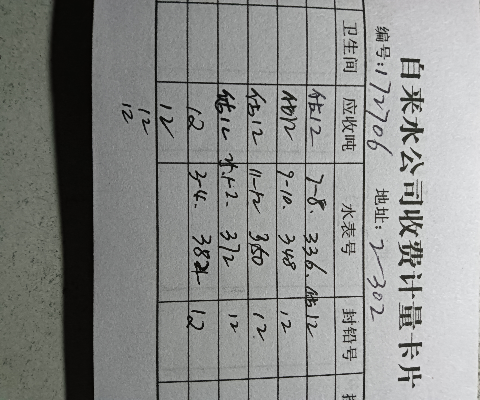 自来水公司收费计量卡片
编号:172706 地址:2-302
卫生间 应收吨 水表号 封铅号
估12 7-8. 336. 估12
估12 9-10. 348 12
估12 11-12 360 12.
估12 1-2. 372 12
12 3-4. 384 12
12
12
12